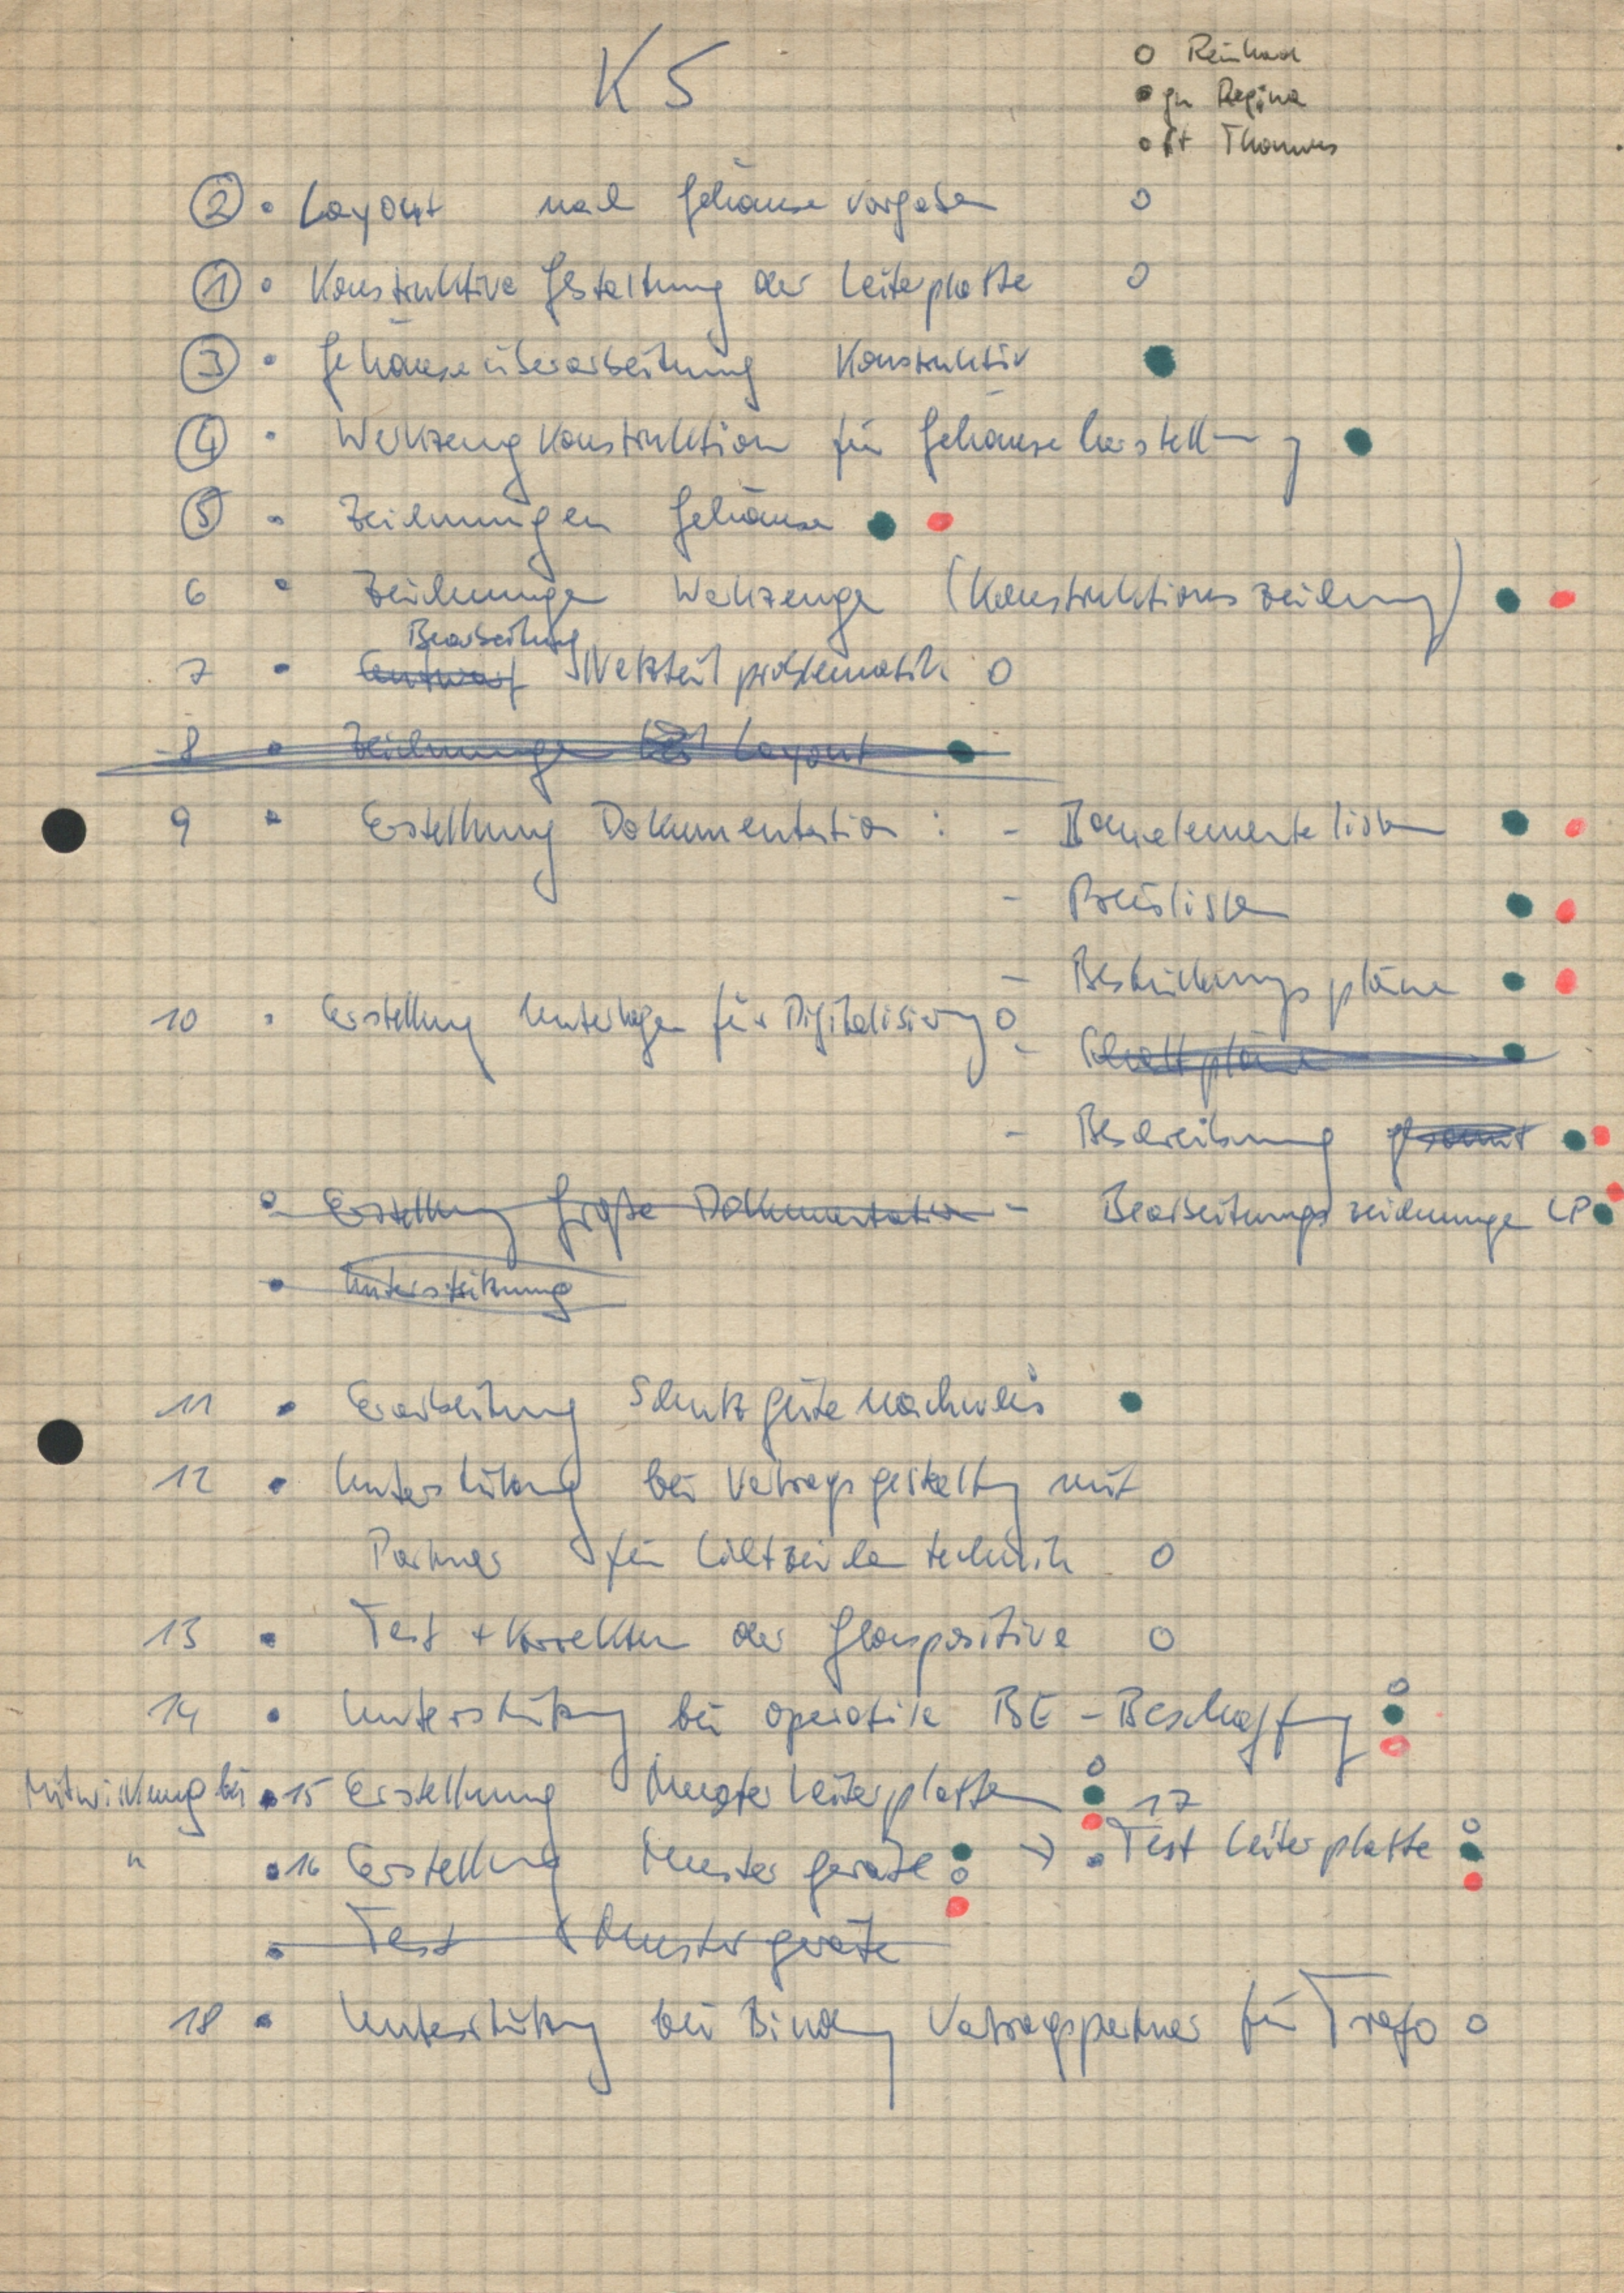 K5
o Reinhard
• gn Regina
o rt Thomas
② • Layout nach Gehäusevorgaben o
① • Konstruktive Gestaltung der Leiterplatte o
③ • Gehäuseüberarbeitung Konstruktiv •
④ • Werkzeugkonstruktion für Gehäuseherstellung •
⑤ • Zeichnungen Gehäuse • •
6 • Zeichnungen Werkzeuge (Konstruktionszeichnung) • •
Bearbeitung
7 • Entwurf Netzteilproblematik o
8 • Zeichnungen Layout •
9 • Erstellung Dokumentation : - Bauelementelisten • •
- Preislisten • •
- Bestückungspläne • •
10 • Erstellung Unterlagen für Digitalisierung o
- Schaltpläne •
- Beschreibung gesamt • •
• Erstellung Große Dokumentation - Bearbeitungszeichnungen LP • •
• Unterstützung
11 • Erarbeitung Schutzgütenachweis •
12 • Unterstützung bei Vertragsgestaltung mit
Partner für Lichtzeichentechnik o
13 • Test + Korrektur der Glaspositive o
14 • Unterstützung bei operativer BE-Beschaffung o • •
Mitwirkung bei • 15 Erstellung Musterleiterplatten o • •
" • 16 Erstellung Mustergeräte • o •
→ 17 • Test Leiterplatte o • •
• Test Mustergeräte
18 • Unterstützung bei Bindung Vertragspartner für Trafo o